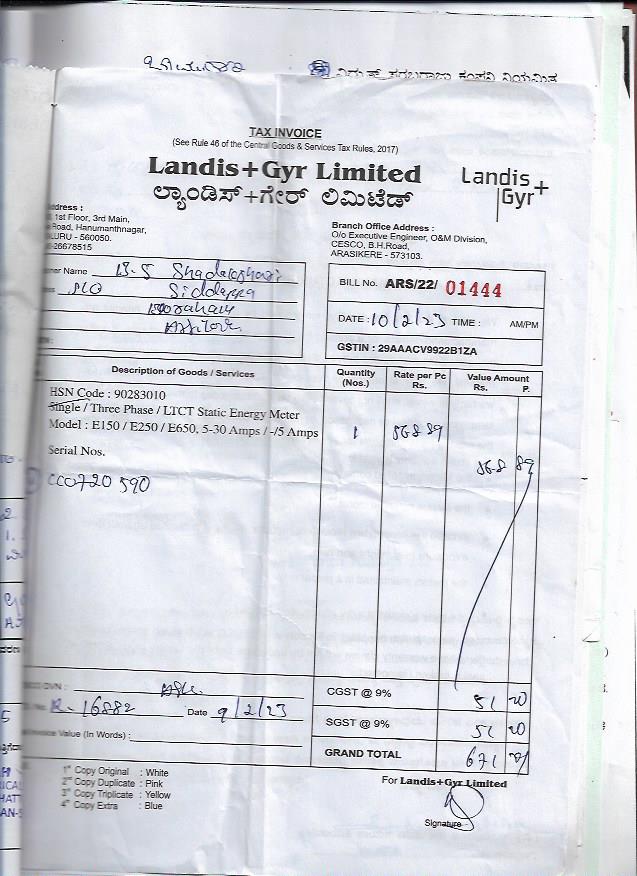 TAX INVOICE
(See Rule 46 of the Central Goods & Services Tax Rules, 2017)
Landis+Gyr Limited
ಲ್ಯಾಂಡಿಸ್+ಗೇರ್ ಲಿಮಿಟೆಡ್
Landis+
Gyr
ddress :
1st Floor, 3rd Main,
Road, Hanumanthnagar,
LURU - 560050.
-26678515
Branch Office Address :
O/o Executive Engineer, O&M Division,
CESCO, B.H.Road,
ARASIKERE - 573103.
ner Name B.S
S/O Siddappa
BILL No. ARS/22/ 01444
DATE : 10/2/23 TIME : AM/PM
GSTIN : 29AAACV9922B1ZA
Description of Goods / Services
Quantity (Nos.)
Rate per Pc Rs.
Value Amount Rs. P.
HSN Code : 90283010
Single / Three Phase / LTCT Static Energy Meter
Model : E150 / E250 / E650, 5-30 Amps / -/5 Amps
1 568 89
Serial Nos.
568 89
CC0720590
DVN :
R-16882 Date 9/2/23
Invoice Value (In Words) :
CGST @ 9% 51 20
SGST @ 9% 51 20
GRAND TOTAL 671
1st Copy Original : White
2nd Copy Duplicate : Pink
3rd Copy Triplicate : Yellow
4th Copy Extra : Blue
For Landis+Gyr Limited
Signature